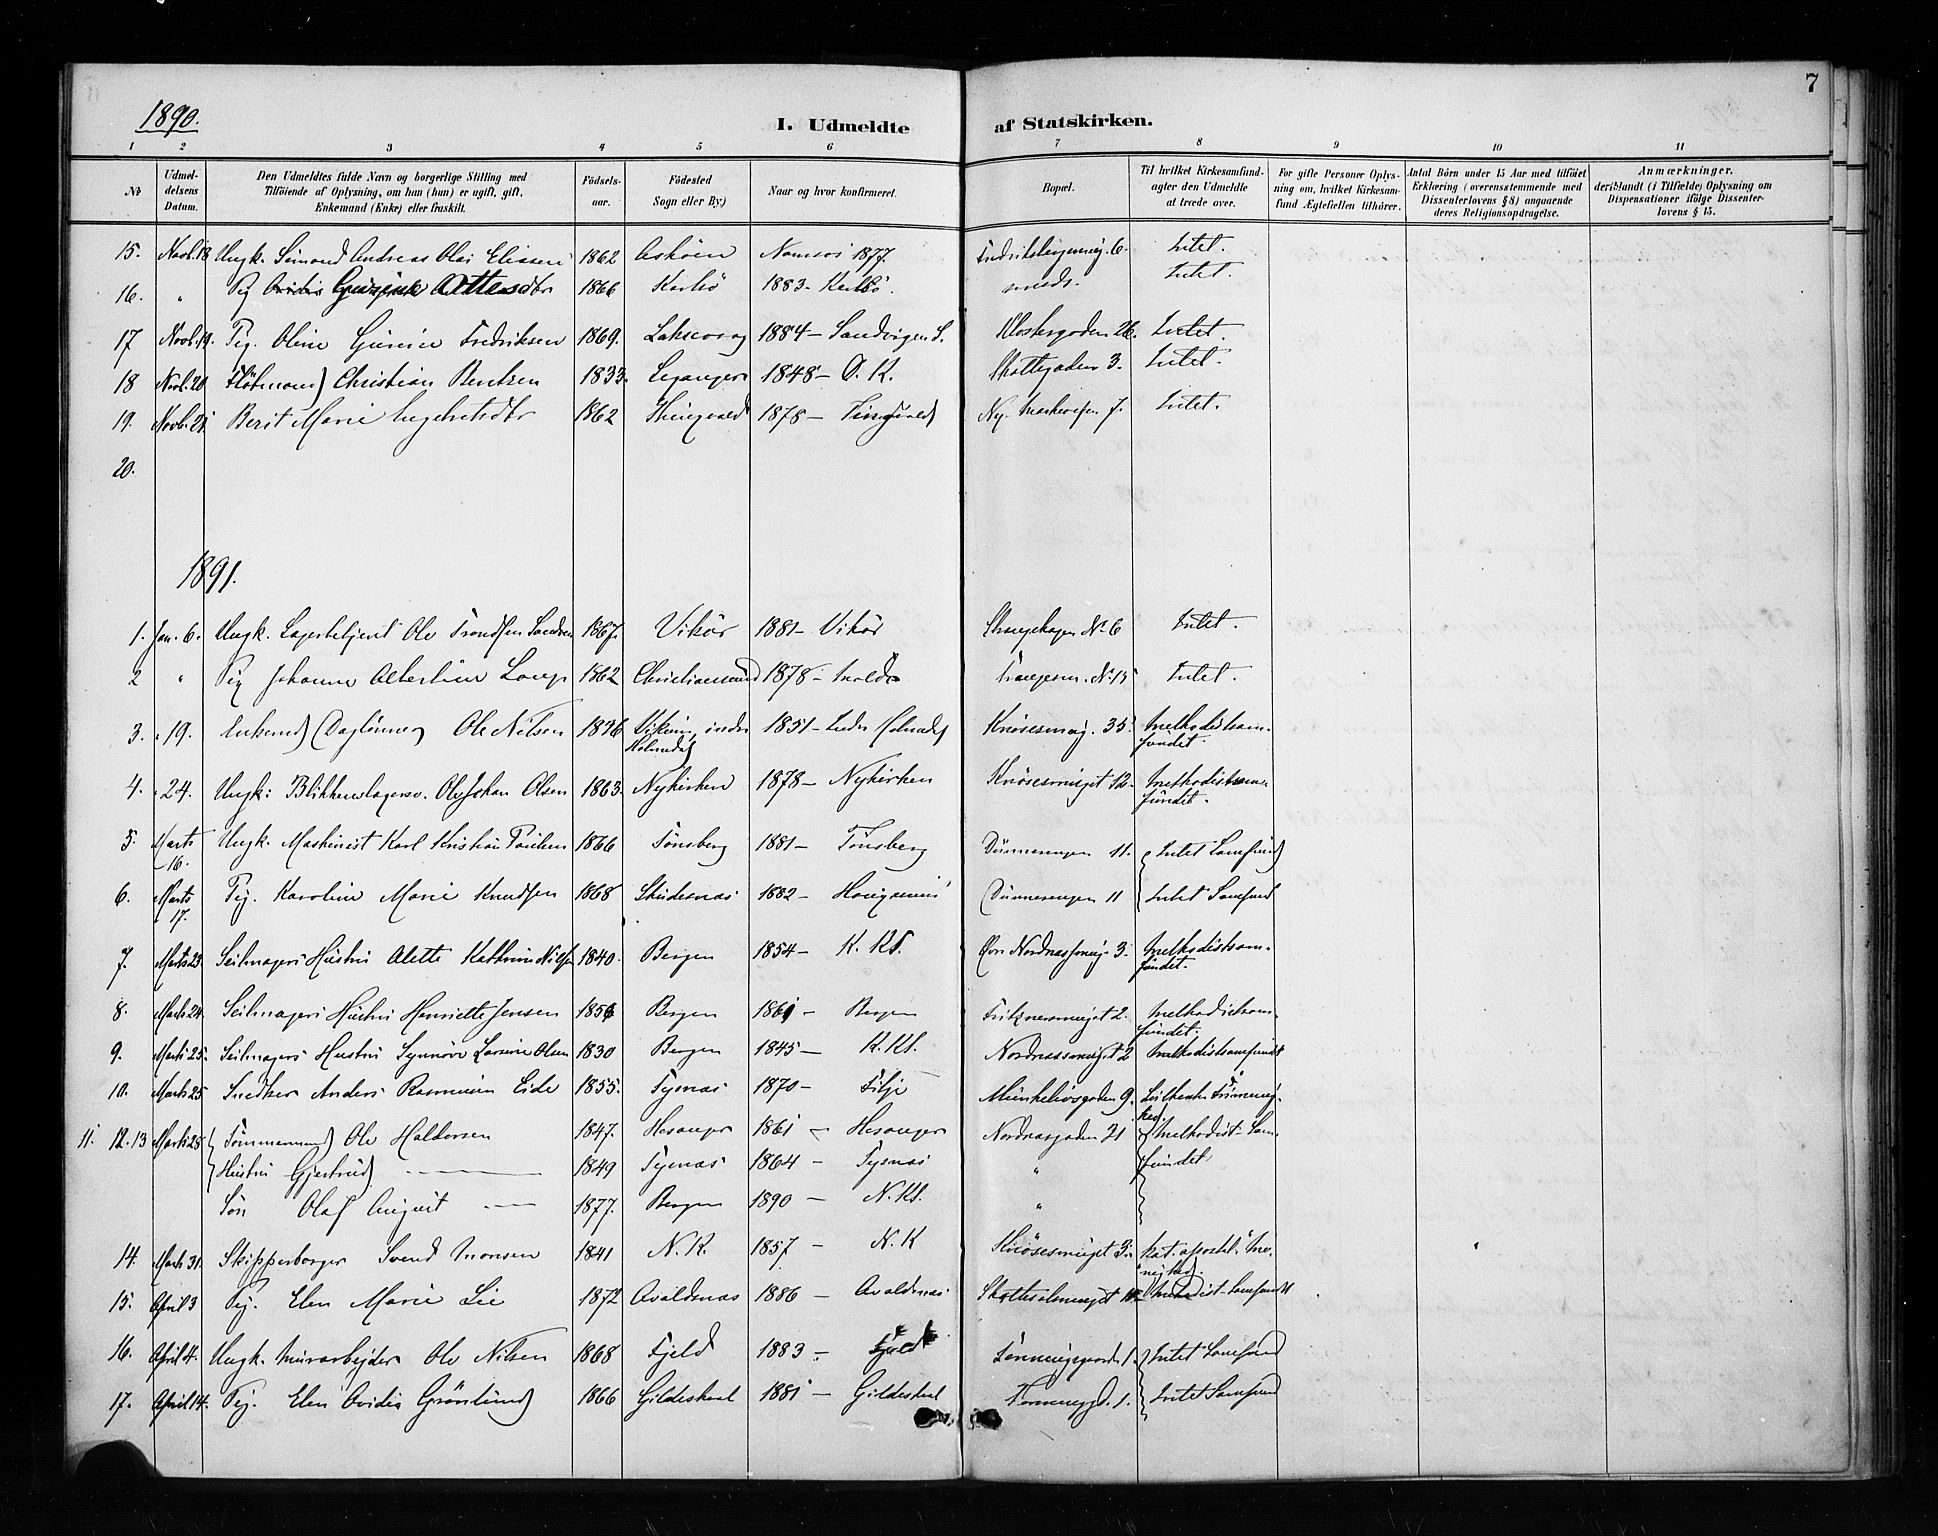 1890.
I. Udmeldte af Statskirken.
7
1 2 3 4 5 6 7 8 9 10 11
No
Udmeldelsens Datum.
Den Udmeldtes fulde Navn og borgerlige Stilling med
Tilföiende af Oplysning, om han (hun) er ugift, gift,
Enkemand (Enke) eller fraskilt.
Födselsaar.
Födested
Sogn eller By)
Naar og hvor konfirmeret.
Bopæl.
Til hvilket Kirkesamfund
agter den Udmeldte
at træde over.
For gifte Personer Oplysning
om, hvilket Kirkesamfund
Ægtefællen tilhörer.
Antal Börn under 15 Aar med tilföiet
Erklæring (overensstemmende med
Dissenterlovens § 8) angaaende
deres Religionsopdragelse.
Anmærkninger,
deriblandt (i Tilfælde) Oplysning om
Dispensationer ifölge Dissenterlovens
§ 15.
15. Novb. 18 Ungk. Simond Andreas Olai Eliassen 1862 Askøen Namsos 1877 6. Intet.
16. " Pig Attesdtr 1866 Karlsö 1883 - Karlsö. Intet.
17 Novb. 19. Pig. Oline Fredriksen 1869. Laksevaag 1884 - Sandvigen S. Klostergaden 26. Intet.
18 Novb. 20 Christian Bentzen 1833. Leganger 1848 - D. K. Skottegaden 3. Intet.
19. Novb. 21. Berit Marie Ingebretsdtr 1862 Thingvold 1878 - Tingvold Ny. 7. Intet.
20.
1891.
1. Jan. 6. Ungk. Ole Trondsen 1867. Vikör 1881 - Vikör Strangehagen No 6 Intet.
2 " Pig Johanne Albertine 1862 Christiansund 1878 - Molde No 15 Intet.
3. " 19. Enkemd (Daglönner) Ole Nilsen 1836 indre Holmedal 1851 - Indre Holmedl Knösesmug. 35 Methodistsamfundet.
4. " 24. Ungk: Blikkenslagersv. Ole Johan Olsen 1863. Nykirken 1878 - Nykirken Knösesmuget 12. Methodistsamfundet.
5. Marts 16. Ungk. Maskinist Karl Kristian 1866 Tönsberg 1881 - Tönsberg 11. Intet Samfund
6. Marts 17. Pig. Karoline Marie Knudsen 1868 Skudesnæs 1882 - 11 Intet Samfund
7. Marts 23. Seilmagers Hustru Alette Kathrine Nilsen 1840. Bergen 1854 - K. Kl. Øvre Nordnæssmug. 3. Methodistsamfundet.
8. Marts 24. Seilmagers Hustru Henriette Jensen Bergen 1861 - Bergen 2. Methodistsamfundet.
9. Marts 25. Seilmagers Hustru Synnöve Larsine Olsen 1830 Bergen 1845 - K. Kl. Nordnæssmuget 2 Methodistsamfundet
10. Marts 25 Snedker Anders Rasmusen Eide 1855. Tysnæs 1870 - Fitje Munkelivsgaden 9. Luthersk Frimenighed.
11. 12. 13 Marts 25. Tömmermand) Ole Haldorsen 1847. Hosanger 1861 - Hosanger Nordnæsgaden 21 Methodist-Samfundet
Hustru Gjertrud) — 1849 Tysnæs 1864 - Tysnæs "
Sön Olaf August — 1877. Bergen 1890 - N. Kl. "
14. Marts 31. Skipperborger Svend Monsen 1841 N. K. 1857 - N. K Knösesmuget 3. kat. apostol. Menighed.
15. April 3 Pig. Elen Marie Lie 1872 Avaldsnæs 1886 - Avaldsnæs Methodist-Samfundet
16. April 4. Ungk. Murarbejder Ole Nilsen 1868 Fjeld 1883 - Fjeld 1. Intet Samfund
17. April 14. Pig. Elen Ovidia Grönlund) 1866 Gildeskaal 1881 - Gildeskaal 1. Intet Samfund